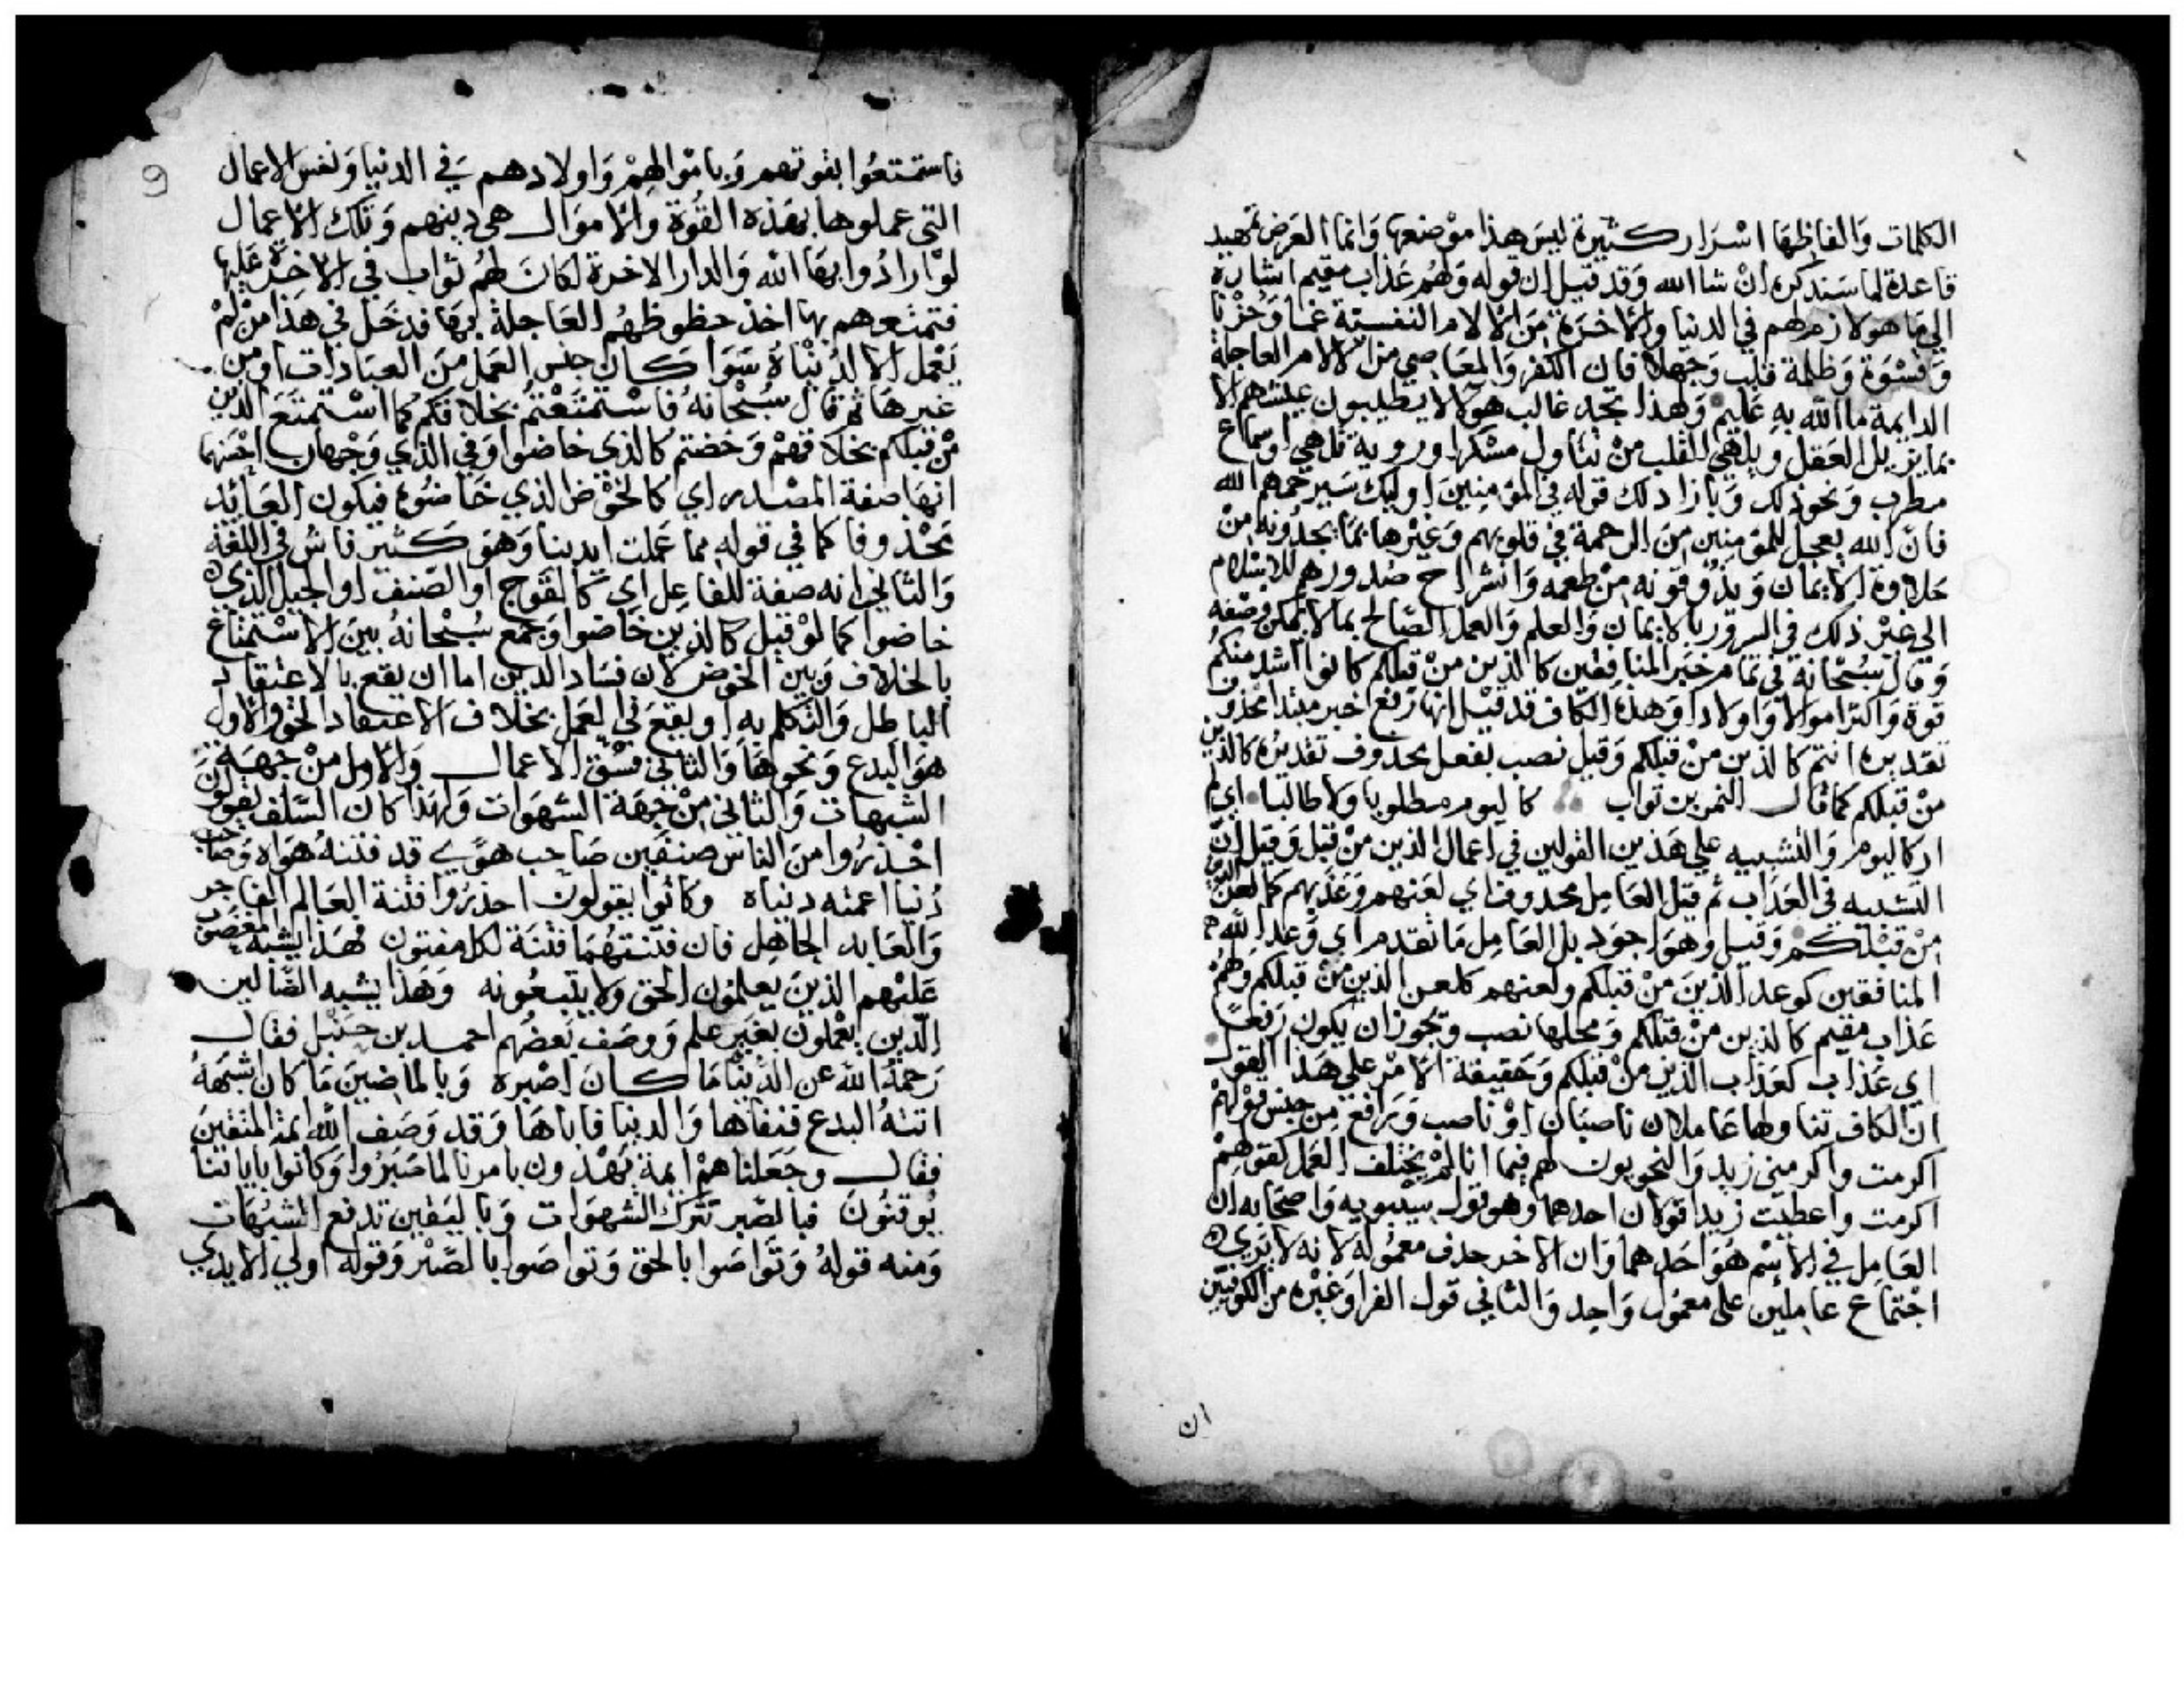 الكلمات وَالفاظِهَا اسْرَار كثيرة ليسَ هذا موْضعها وَانما الغرض تمهيد
قاعدة لما سَنذكره انْ شا الله وَقد قيل ان قوله وَلهُم عَذاب مقيم اشارة
الي مَا هو لازم لهم في الدنيا وَالاخرَة مِنَ الالام النفسية غما وَحُزْنا
وَقسْوَة وَظلمة قلب وَجهلا فان الكفر وَالمعَاصي من الالام العاجلة
الدايمة ما الله به عَليم وَلهذا تجد غالب هولا لا يطيبون عيشهم الا
بما يزيل العَقل وَيلهي القلب منْ تناول مسْكر او روية مله او سماع
مطرب وَنحو ذلك وَبازا ذلك قوله في المومنينَ اوليك سَيرحمهم الله
فانّ الله يعجل للمومنين مِنَ الرحمة في قلوبهم وَغيْرها بمَا يجدُونه مِنْ
حَلاوة الايمان وَيذوقونه منْ طعمه وَانشراح صُدورهم للاسْلام
الي غيْر ذلك في السرور بالايمان وَالعلم وَالعمل الصَّالح بما لا يمكن وصْفه
وَقال سبْحَانهُ في تمام خبر المنافِقين كالذين منْ قبلكم كانوا اشد منكمُ
قوة وَاكثر اموالا وَاولادا وَهذه الكاف قد قيْل انها رَفع خبر مبتدا محذوف
تقديره انتم كالذين منْ قبلكم وَقيل نصب بفعل محذوف تقديره كالذين
منْ قبلكم كما قال النمر بن تواب كاليوم مطلوبا ولا طالبا اي لم
ار كاليوم وَالتشبيه علي هَذين القولين في اعمال الذين من قبل وَقيل انّ
التشبيه في العَذاب ثم قيل العَامِل محذوف اي لعنهم وَعَذبهم كما لعن الذين
مِنْ قبْلكم وَقيل وَهوَ اجوَد بل العَامِل مَا تقدم اي وَعد الله
المنافقين كوعد الذينَ مِنْ قبلكم ولعنهم كلعن الذين منْ قبلكم وَلهُم
عَذاب مقيم كالذين منْ قبلكم وَمحلها نصب وَيجوز ان يكون رَفعا
اي عَذاب كعَذاب الذين منْ قبلكم وَحَقيقة الامْر علي هَذا القول
انّ الكاف تناولها عَاملان ناصبَان اوْ ناصب وَرَافع مِن جنس قوْلهمْ
اكرمت واكرمني زيد وَالنحويون لهم فيما اذا لمْ يختلف العَمل كقولهِمْ
اكرمت واعطيت زيدا قولان احدهما وهو قول سيْبويه وَاصحَابه ان
العَامِل في الاسْم هُوَ احَدهما وَان الاخر حذف معمُوله لانه لا يَري
اجْتماع عامِلين على معمُول وَاحِد وَالثاني قول الفرا وَغيْره من الكوفيين
ان
9
فاستمتعُوا بقوتهم وَبامْوالِهِمْ وَاولادهم في الدنيا وَنفس الاعمال
التي عملوها بهَذه القُوة وَالاموَال هي دينهم وَتلكَ الاعمال
لوْ ارادُوا بهَا الله وَالدار الاخرة لكانَ لهُم ثوَاب في الاخرة عَليها
فتمتعوهم بها اخذ حظوظهُم العَاجلة بهَا فدخَل في هَذا منْ لمْ
يَعْمل الا لدُنْيَاه سَوَا كان جنس العَمل منَ العبَادات او من
غيرهَا ثم قال سُبْحَانهُ فاسْتمتَعْتمُ بخلاقكم كما اسْتمتعَ الذين
منْ قبلكم بخلاقهمْ وَخضتم كالذي خاضوا وَفي الذي وَجْهان احْسَنهما
انهَا صفة المصْدر اي كالخوْض الذي خَاضُوه فيكون العَائد
محْذوفا كما في قوله مما عَملت ايدينا وَهوَ كثير فاش في اللغة
وَالثاني انه صفة للفاعِل اي كالفوج او الصّنف او الجيل الذي
خاضوا كما لوْ قيل كالذين خَاضوا وَجمع سُبْحانهُ بين الاسْتمتاع
بالخلاف وَبين الخوْض لان فسَاد الدين اما ان يقع بالاعتقاد
الباطل وَالتكلم به او يقعَ في العَمل بخلاف الاعتقاد الحق والاول
هوَ البدع وَنحوهَا وَالثاني فسْق الاعمال وَالاول منْ جهَة
الشبهات وَالثاني مِنْ جهَة الشهَوَات وَلهَذا كان السّلف يقولونَ
احْذرُوا منَ الناس صنفين صَاحب هوَي قد فتنهُ هوَاه وَصَاحب
دُنيا اعمته دنياه وَكانوا يقولون احذروا فتنة العَالم الفاجر
وَالعَابد الجاهِل فان فتنتهُمَا فتنَة لكل مفتون فهَذا يشبه المغضوب
عَليْهم الذينَ يعلمُون الحق ولا يتبعُونه وَهَذا يشبه الضَّالين
الّذين يعْملونَ بغيْر علم وَوصَف بَعضُهم احمد بن حَنبَل فقال
رَحمهُ الله عن الدّنْيَا مَا كانَ اصْبره وَبالماضِينَ مَا كان اشْبَههُ
اتتهُ البدع فنفاهَا وَالدنيا فاباهَا وَقد وَصَف الله ايمة المتقينَ
فقال وجَعَلناهمْ ايمة يهْدون بامرنا لما صَبَرُوا وَكانوا باياتنا
يُوقنُونَ فبالصّبر تتركَ الشهَوَات وَباليَقين تدفع الشبُهَات
وَمنه قولهُ وَتَوَاصَوا بالحق وَتواصَوا بالصَّبْر وَقوله اولي الايدي